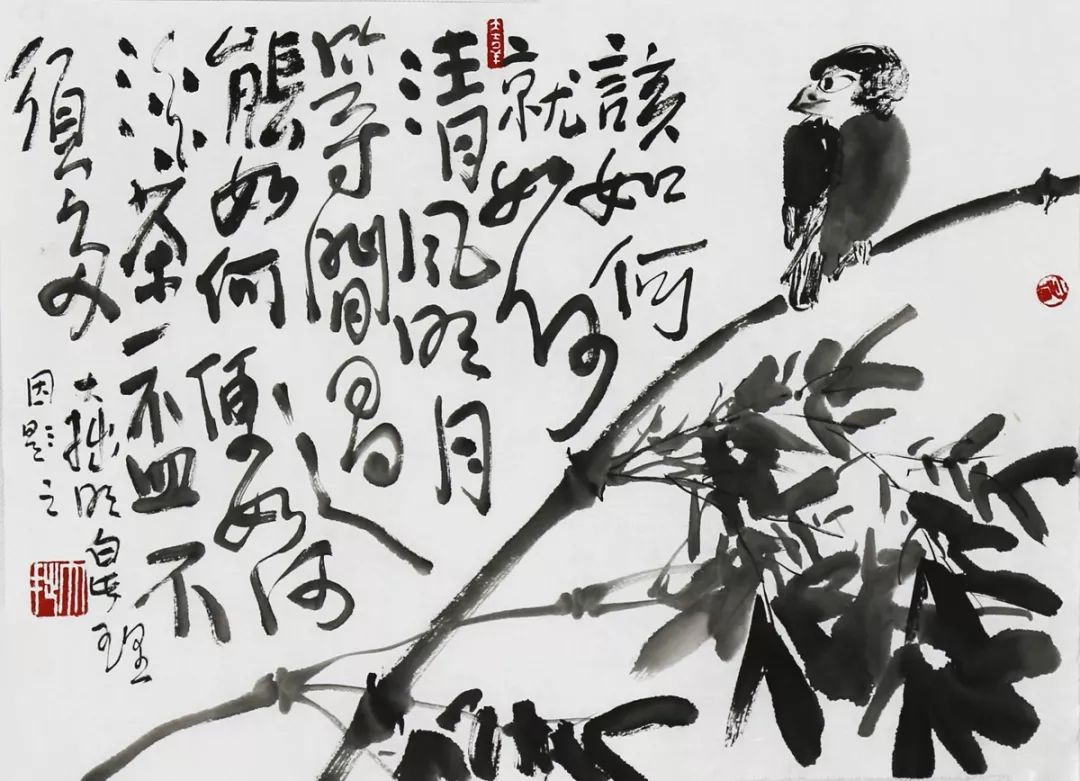 該如何
就如何
清風明月
等閒過
能如何便如何
添茶一盃不
須多
大拙明白理
因題之
大拙